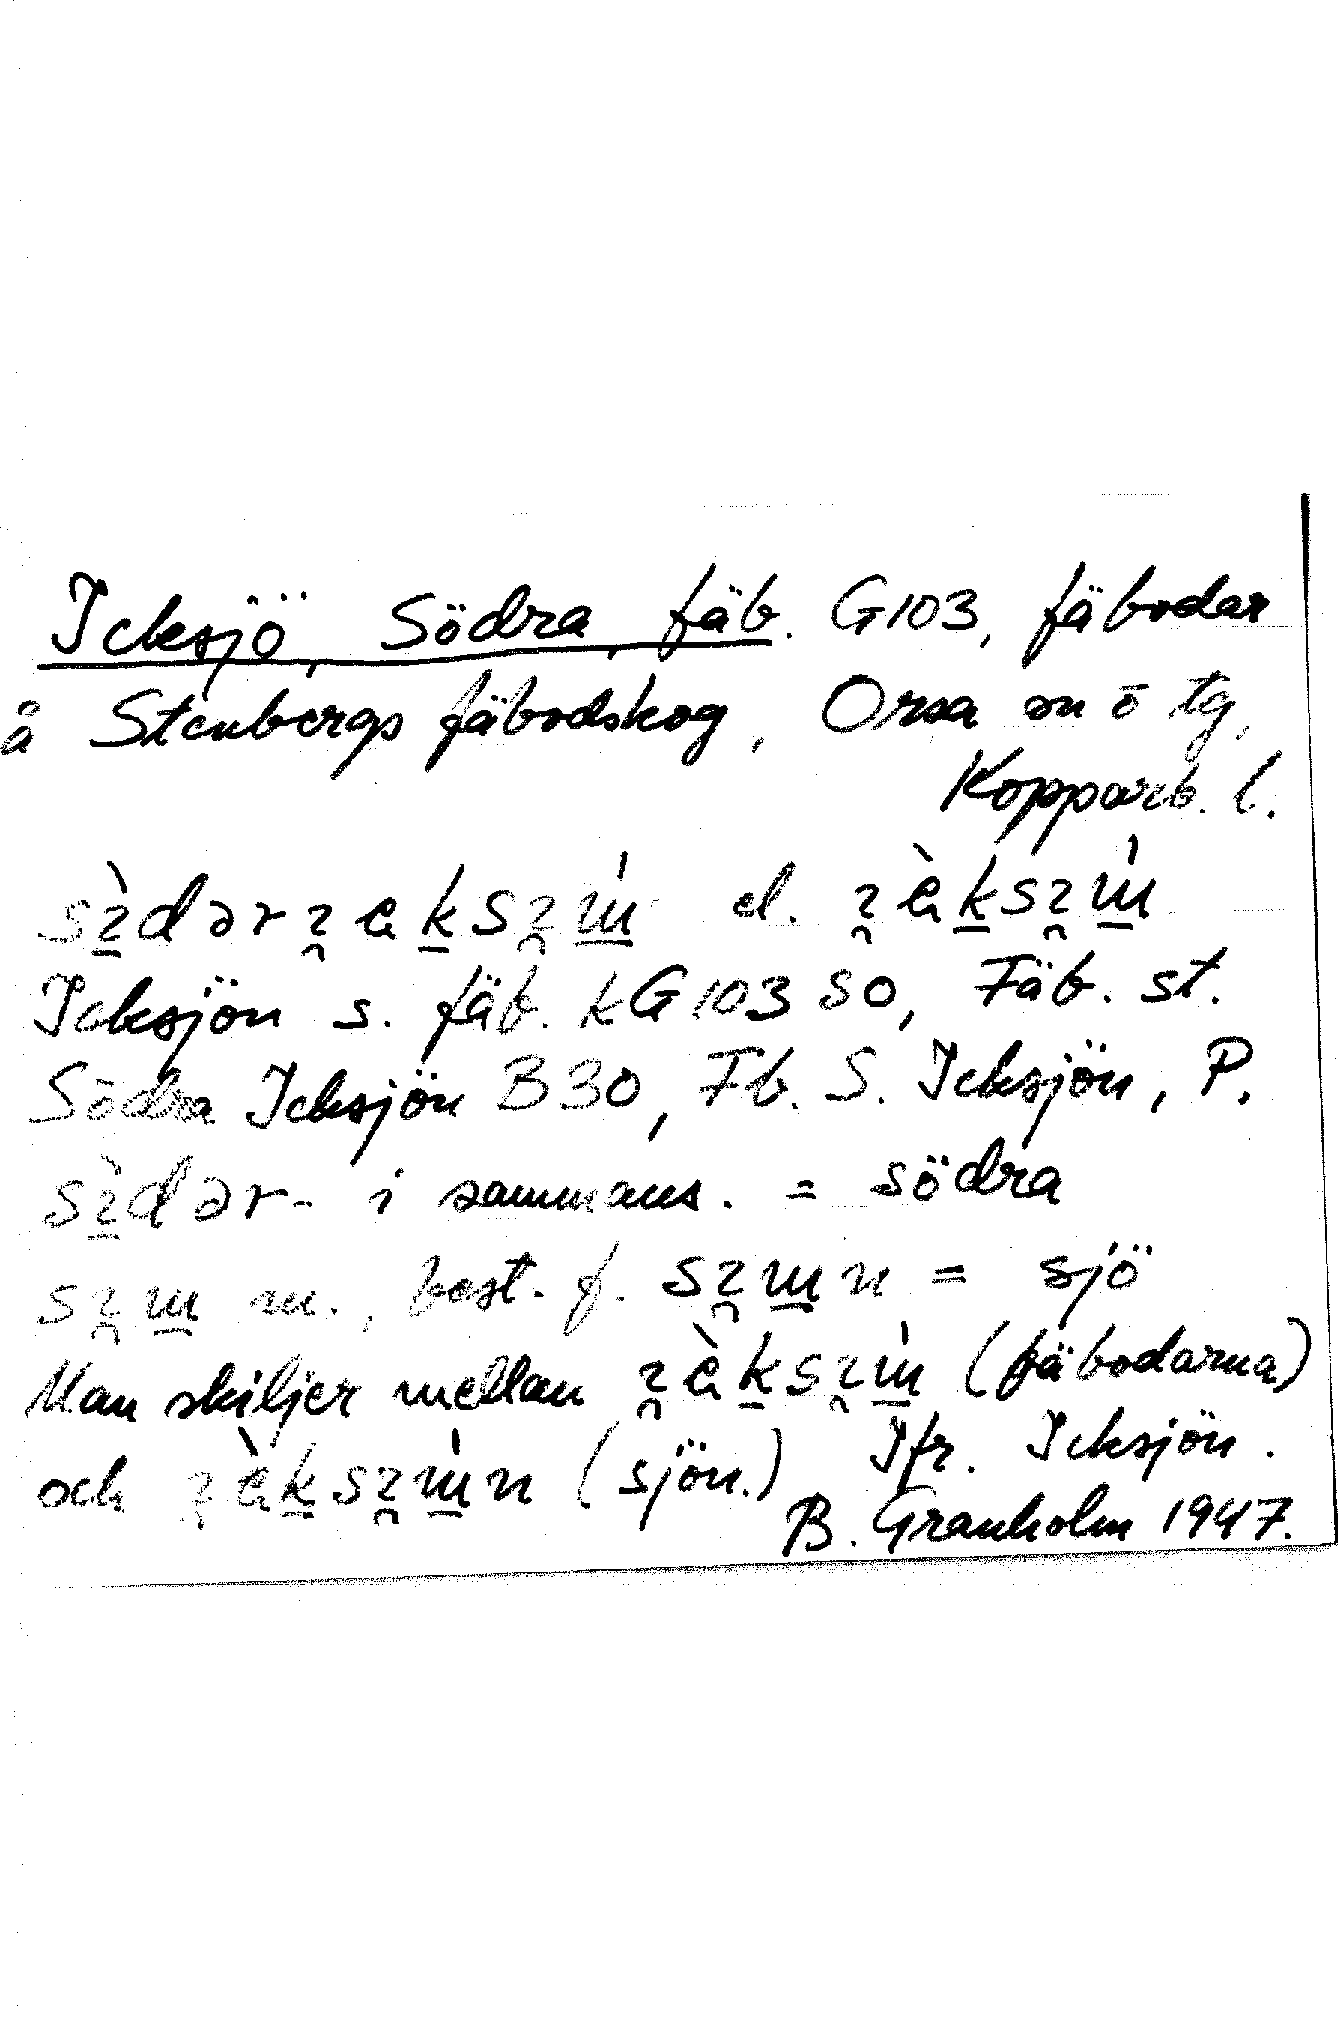 Icksjö, Södra, fäb. G103, fäbodar
å Stenbergs fäbodskog, Orsa sn ö tg,
Kopparb. l.
el.
Icksjön s. fäb. kG103 SO, Fäb. st.
Södra Icksjön B30, Fb. S. Icksjön, P.
i sammans. = södra
m., best. f. = sjö
Man skiljer mellan (fäbodarna)
och (sjön.) Jfr. Icksjön.
B. Granholm 1947.